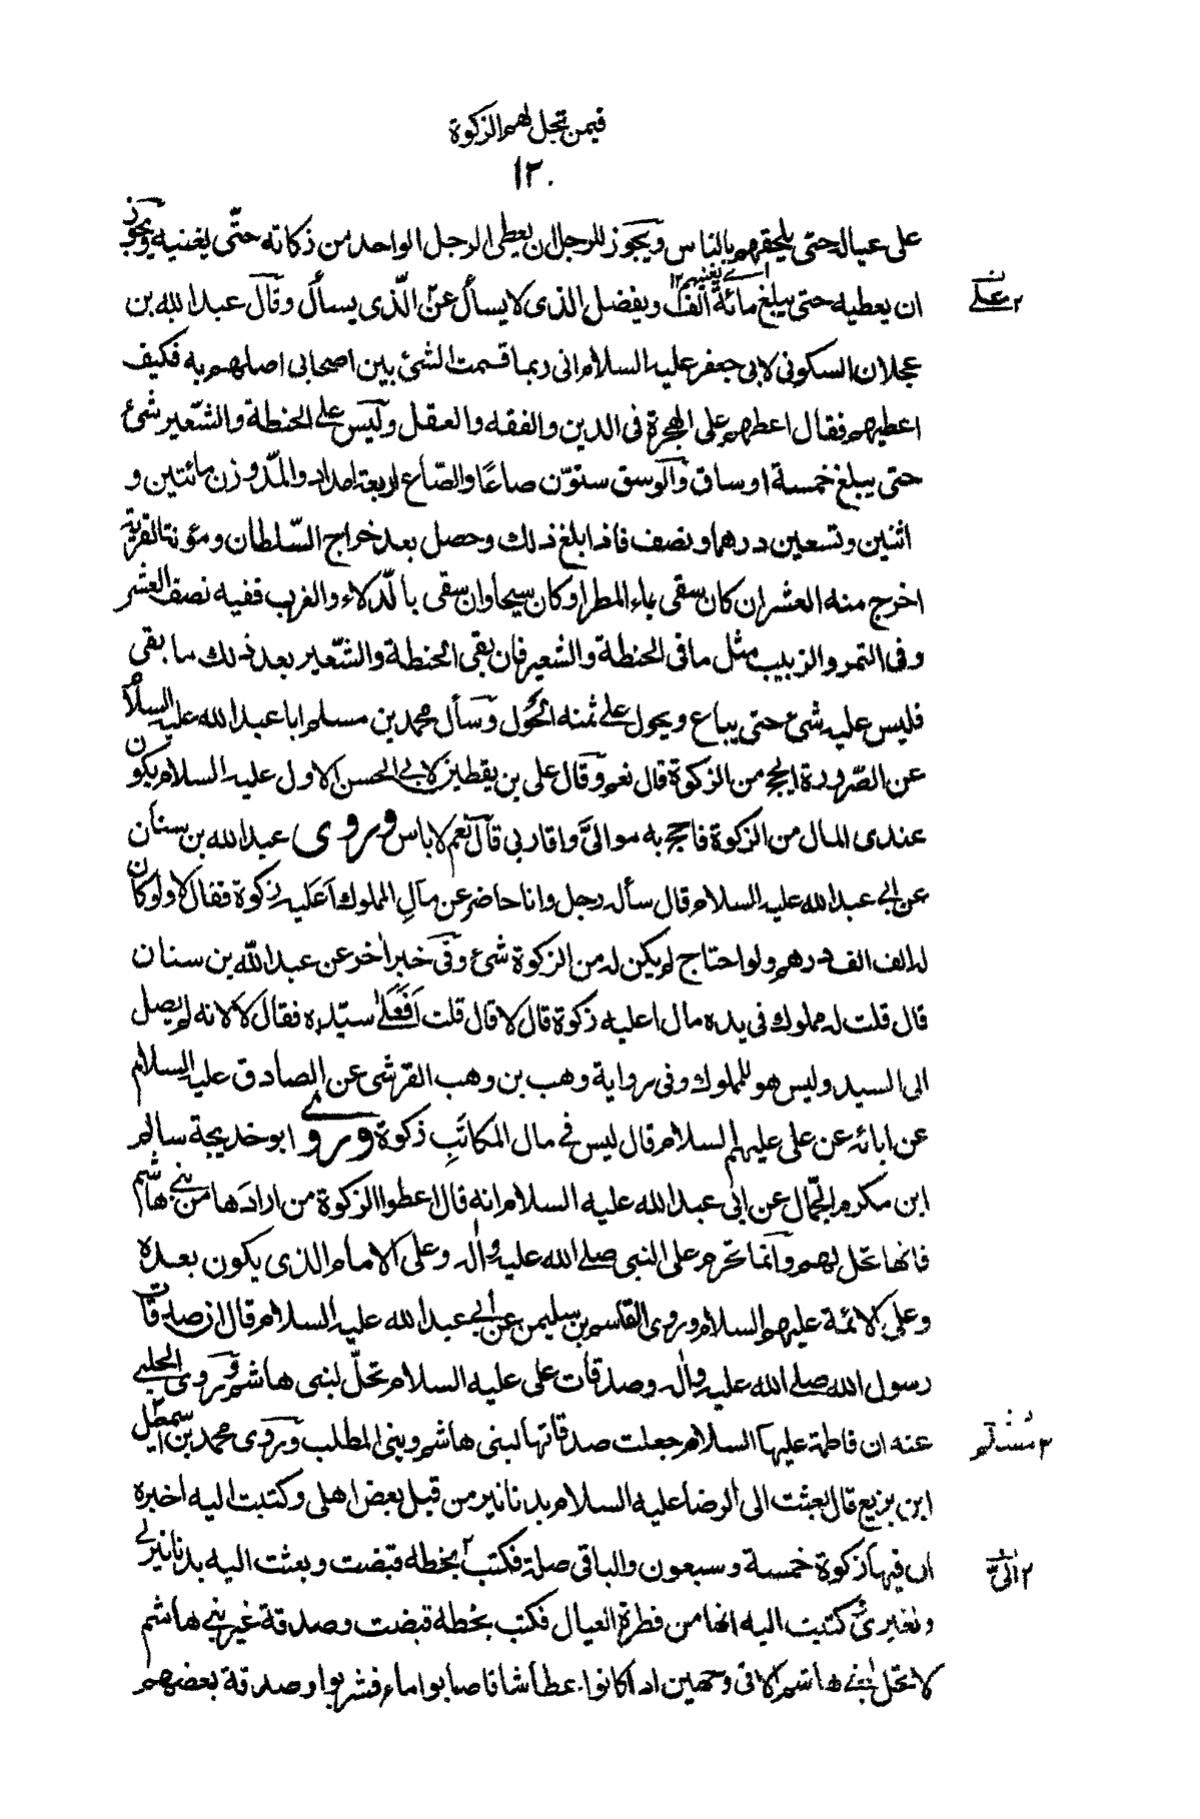 فيمن تحل لهم الزكوة
١٢٠
على عياله حتى يلحقهم بالناس ويجوز للرجل ان يعطى الرجل الواحد من زكاته حتّى يغنيه ويجوز
ان يعطيه حتى يبلغ مائة الف ويفضل الذى لا يسأل عن الّذى يسأل وقال عبد الله بن
اى يغنيهم ١٢
٢ على
عجلان السكونى لابى جعفر عليه السلام انى ربما قسمت الشئ بين اصحابى اصلهم به فكيف
اعطيهم فقال اعطهم على الهجرة فى الدين والفقه والعقل وليس على الحنطة والشّعير شئ
حتى يبلغ خمسة اوساق والوسق ستوّن صاعًا والصّاع اربعة امداد والمدّ وزن مائتين و
اثنين وتسعين درهما ونصف فاذا بلغ ذلك وحصل بعد خراج السّلطان ومؤنة القرية
اخرج منه العشر ان كان سقى بماء المطر او كان سيحا وان سقى بالدّلاء والغرب ففيه نصف العشر
وفى التمر والزبيب مثل ما فى الحنطة والشعير فان بقى الحنطة والشّعير بعد ذلك ما بقى
فليس عليه شئ حتى يباع ويحول على ثمنه الحول وسأل محمد بن مسلم ابا عبد الله عليه السلام
عن الصّرورة ايحج من الزكوة قال نعم وقال على بن يقطين لابى الحسن الاول عليه السلام يكون
عندى المال من الزكوة فاحج به موالىّ واقاربى قال نعم لا باس وروى عبد الله بن سنان
عن ابى عبد الله عليه السلام قال سأله رجل وانا حاضر عن مال المملوك اعليه زكوة فقال لا ولو كان
له الف الف درهم ولو احتاج لم يكن له من الزكوة شئ وفى خبر اخر عن عبد اللّه بن سنان
قال قلت له مملوك فى يده مال اعليه زكوة قال لا قال قلت أفعلى سيّده فقال لا لانه لم يصل
الى السيد وليس هو للمملوك وفى رواية وهب بن وهب القرشى عن الصادق عليه السلام
عن ابائه عن على عليهم السلام قال ليس فى مال المكاتَبِ زكوة وروى ابو خديجة سالم
ابن مكرم الجمّال عن ابى عبد الله عليه السلام انه قال اعطوا الزكوة من ارادَها من بنى هاشم
فانها تحل لهم وانما تحرم على النبى صلى الله عليه واله وعلى الامام الذى يكون بعده
وعلى الائمة عليهم السلام وروى القاسم بن سليمن عن ابى عبد الله عليه السلام قال ان صدقات
رسول الله صلى الله عليه واله وصدقات على عليه السلام تحلّ لبنى هاشم وروى الحلبى
عنه ان فاطمة عليها السلام جعلت صدقاتها لبنى هاشم وبنى المطلب وروى محمد بن اسمعيل
ابن بزيع قال بعثت الى الرضا عليه السلام بدنانير من قبل بعض اهلى وكتبت اليه اخبره
ان فيها زكوة خمسة وسبعون والباقى صلة فكتب بخطه قبضت وبعثت اليه بدنانير لى
٢ الىّ
ولغيرى كتبت اليه انها من فطرة العيال فكتب بخطه قبضت وصدقة غير بنى هاشم
لا تحل لبنى هاشم الا فى وجهين اذا كانوا عطاشا فاصابوا ماء فشربوا وصدقة بعضهم